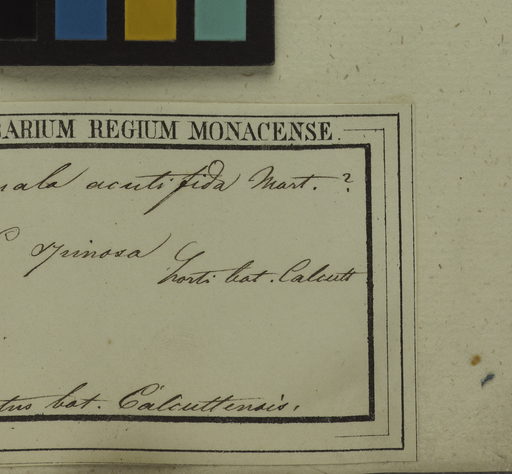 BARIUM REGIUM MONACENSE
mala acutifida Mart. ?
spinosa
horti bot. Calcutt
tus bot. Calcuttensis.